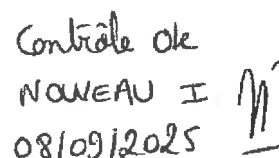 Contrôle de
NOUVEAU I
08/09/2025